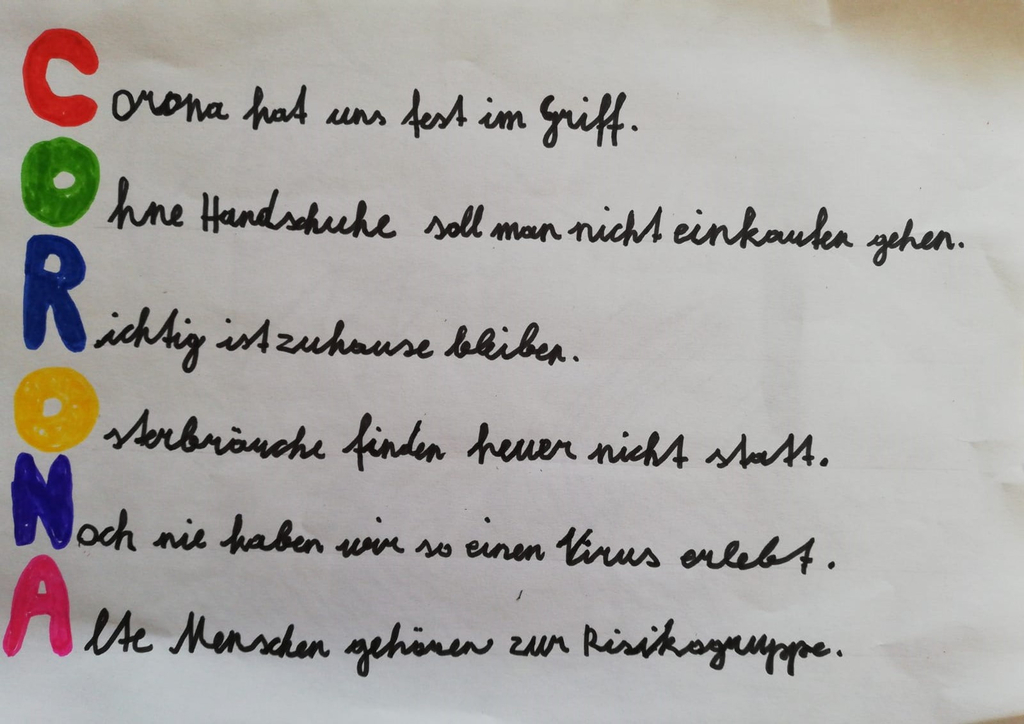 Corona hat uns fest im Griff.
Ohne Handschuhe soll man nicht einkaufen gehen.
Richtig ist zuhause bleiben.
Osterbräuche finden heuer nicht statt.
Noch nie haben wir so einen Virus erlebt.
Alte Menschen gehören zur Risikogruppe.